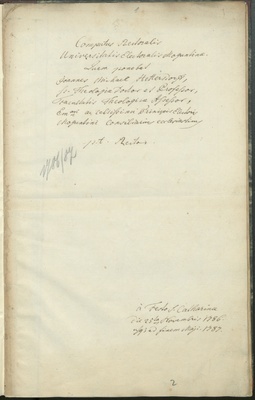 Computus Rectoralis
Universitatis Electoralis Moguntinae
quem ponebat
Joannes
SS. Theologiae Doctor et Professor,
Facultatis Theologicae Assessor,
Emmi ac celsissimi Principis Electoris
Moguntini Consiliarius ecclesiasticus
p.t. Rector.
1786/87.
à Festo S. Catharinae
die 25ta Novembris 1786
usque ad finem 1787.
2